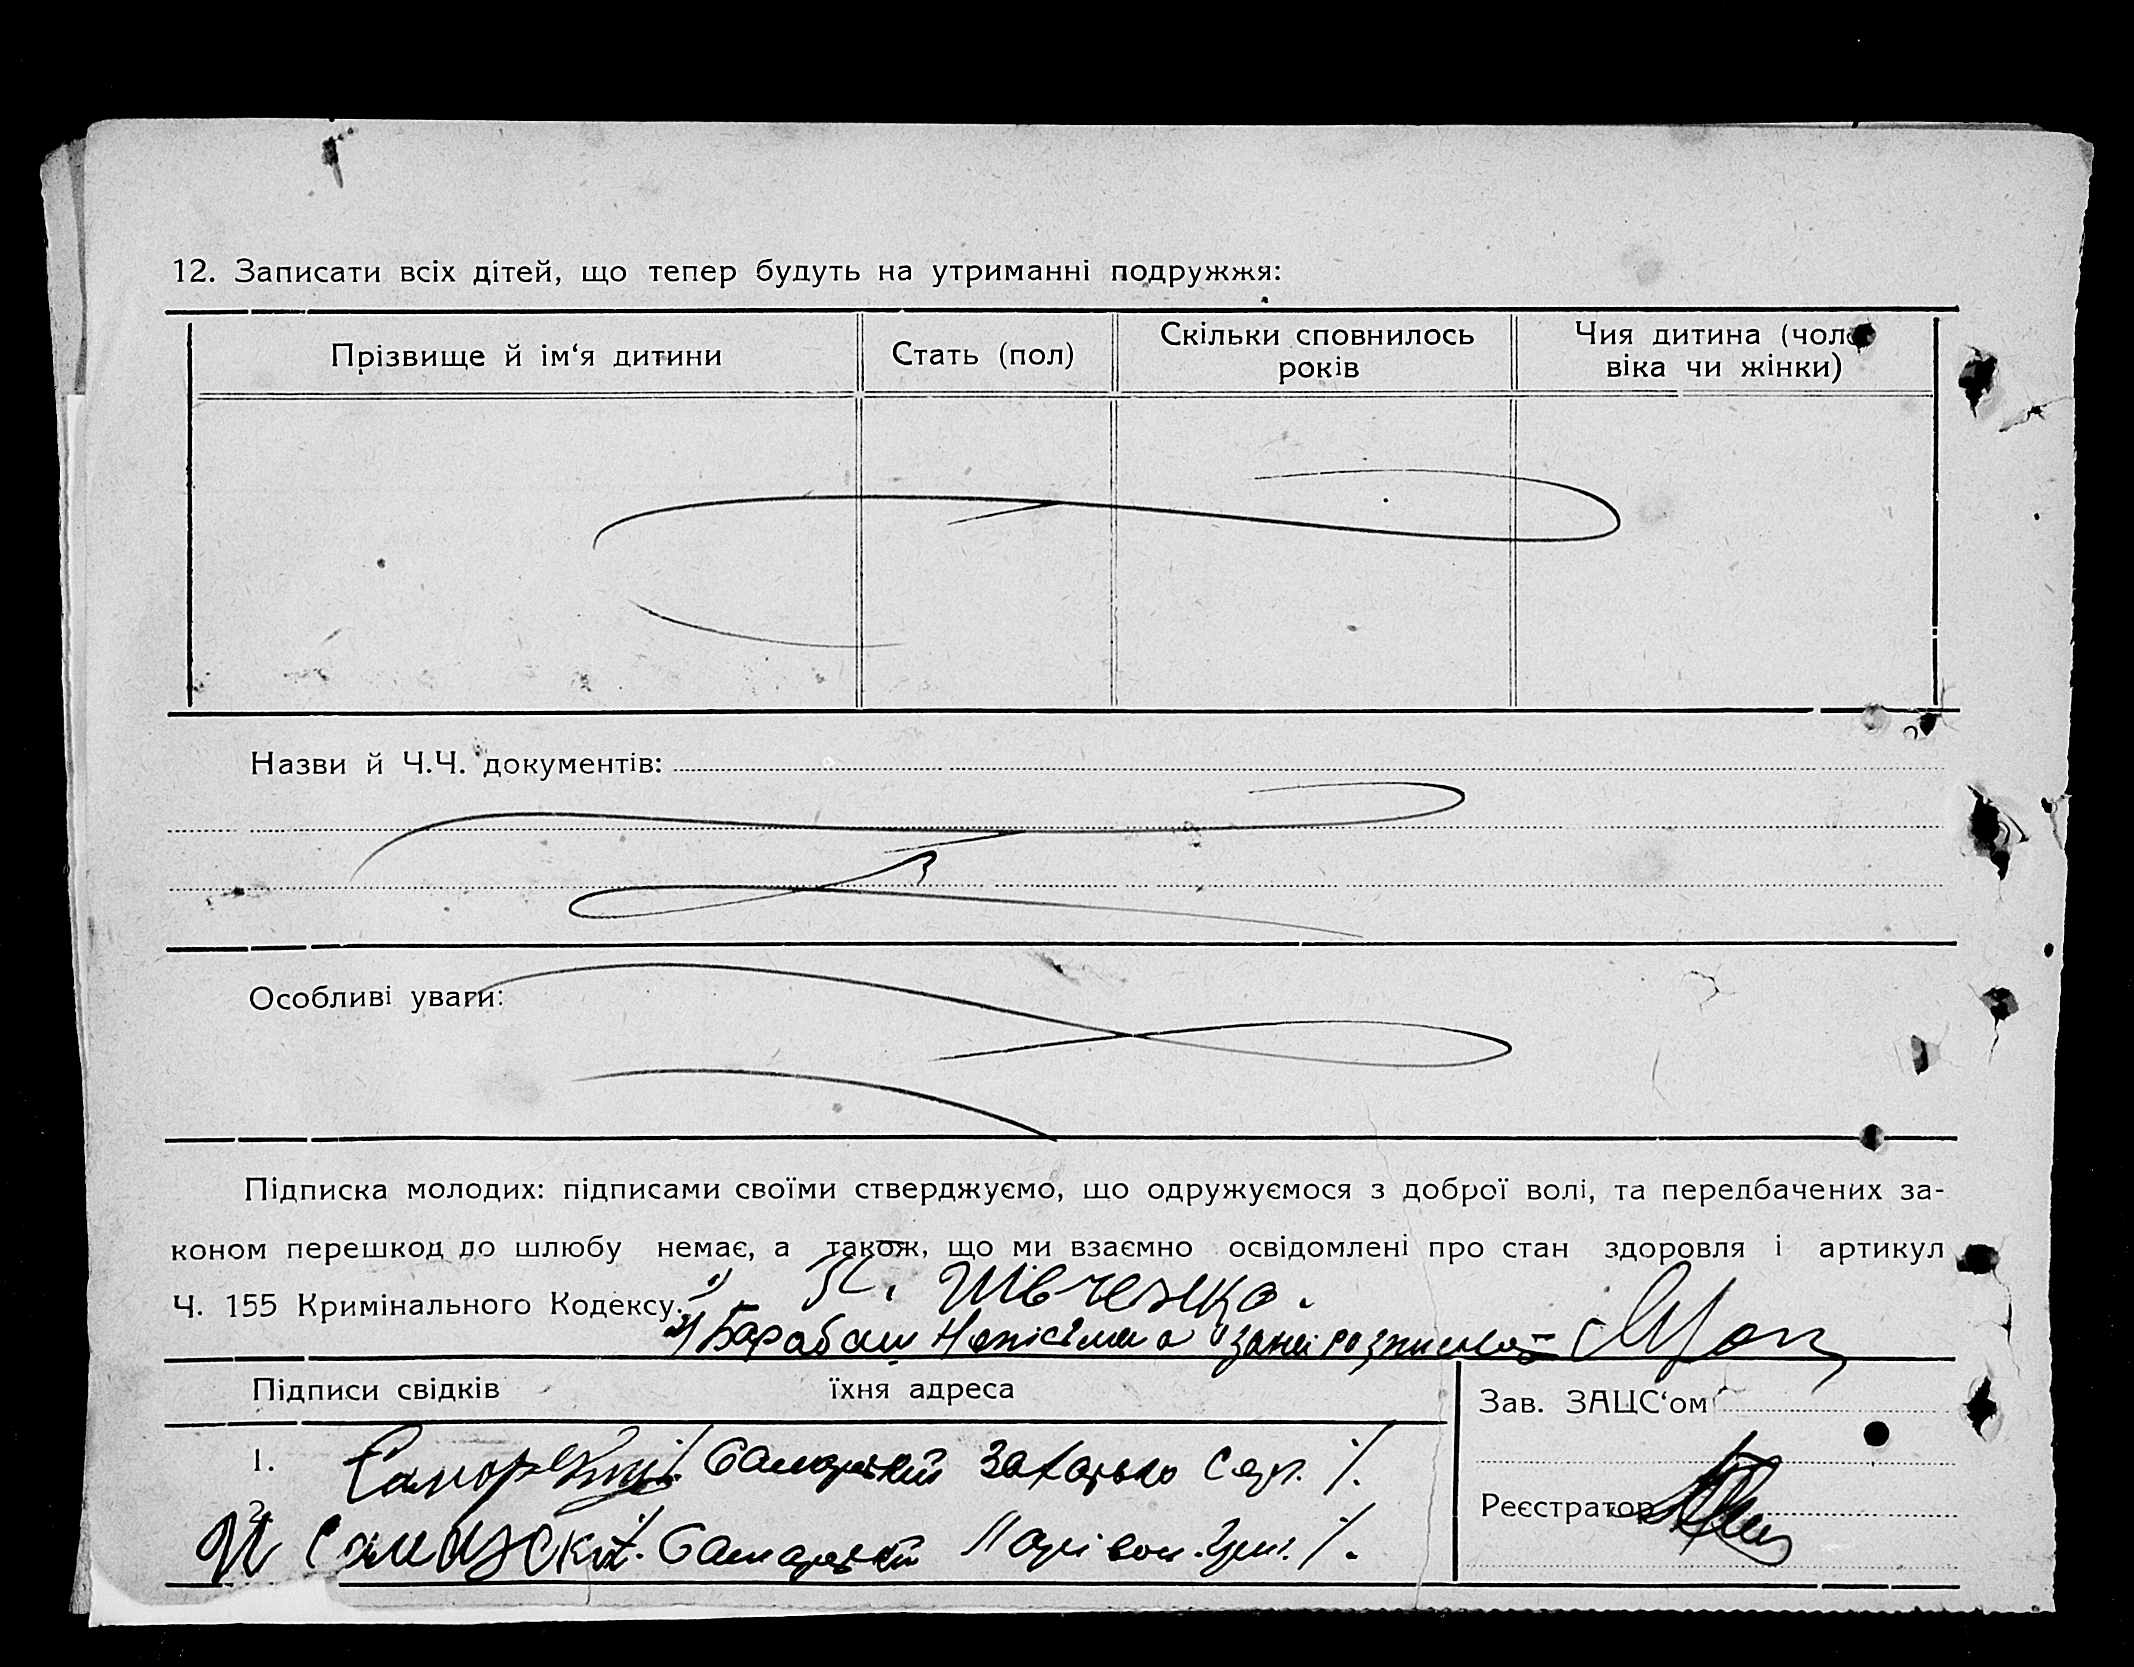 12. Записати всіх дітей, що тепер будуть на утриманні подружжя:
Прізвище й ім‘я дитини
Стать (пол)
Скільки сповнилось
років
Чия дитина (чоло
віка чи жінки)
Назви й Ч.Ч. документів:
Особливі уваги:
Підписка молодих: підписами своїми стверджуємо, що одружуємося з доброї волі, та передбачених за-
коном перешкод до шлюбу немає, а також, що ми взаємно освідомлені про стан здоровля і артикул
Ч. 155 Кримінального Кодексу.
1) Шевченко.
2) Барабаш Неписьменна
Підписи свідків їхня адреса
Зав. ЗАЦС‘ом
1. Самарский
2. Самарский
Реєстратор